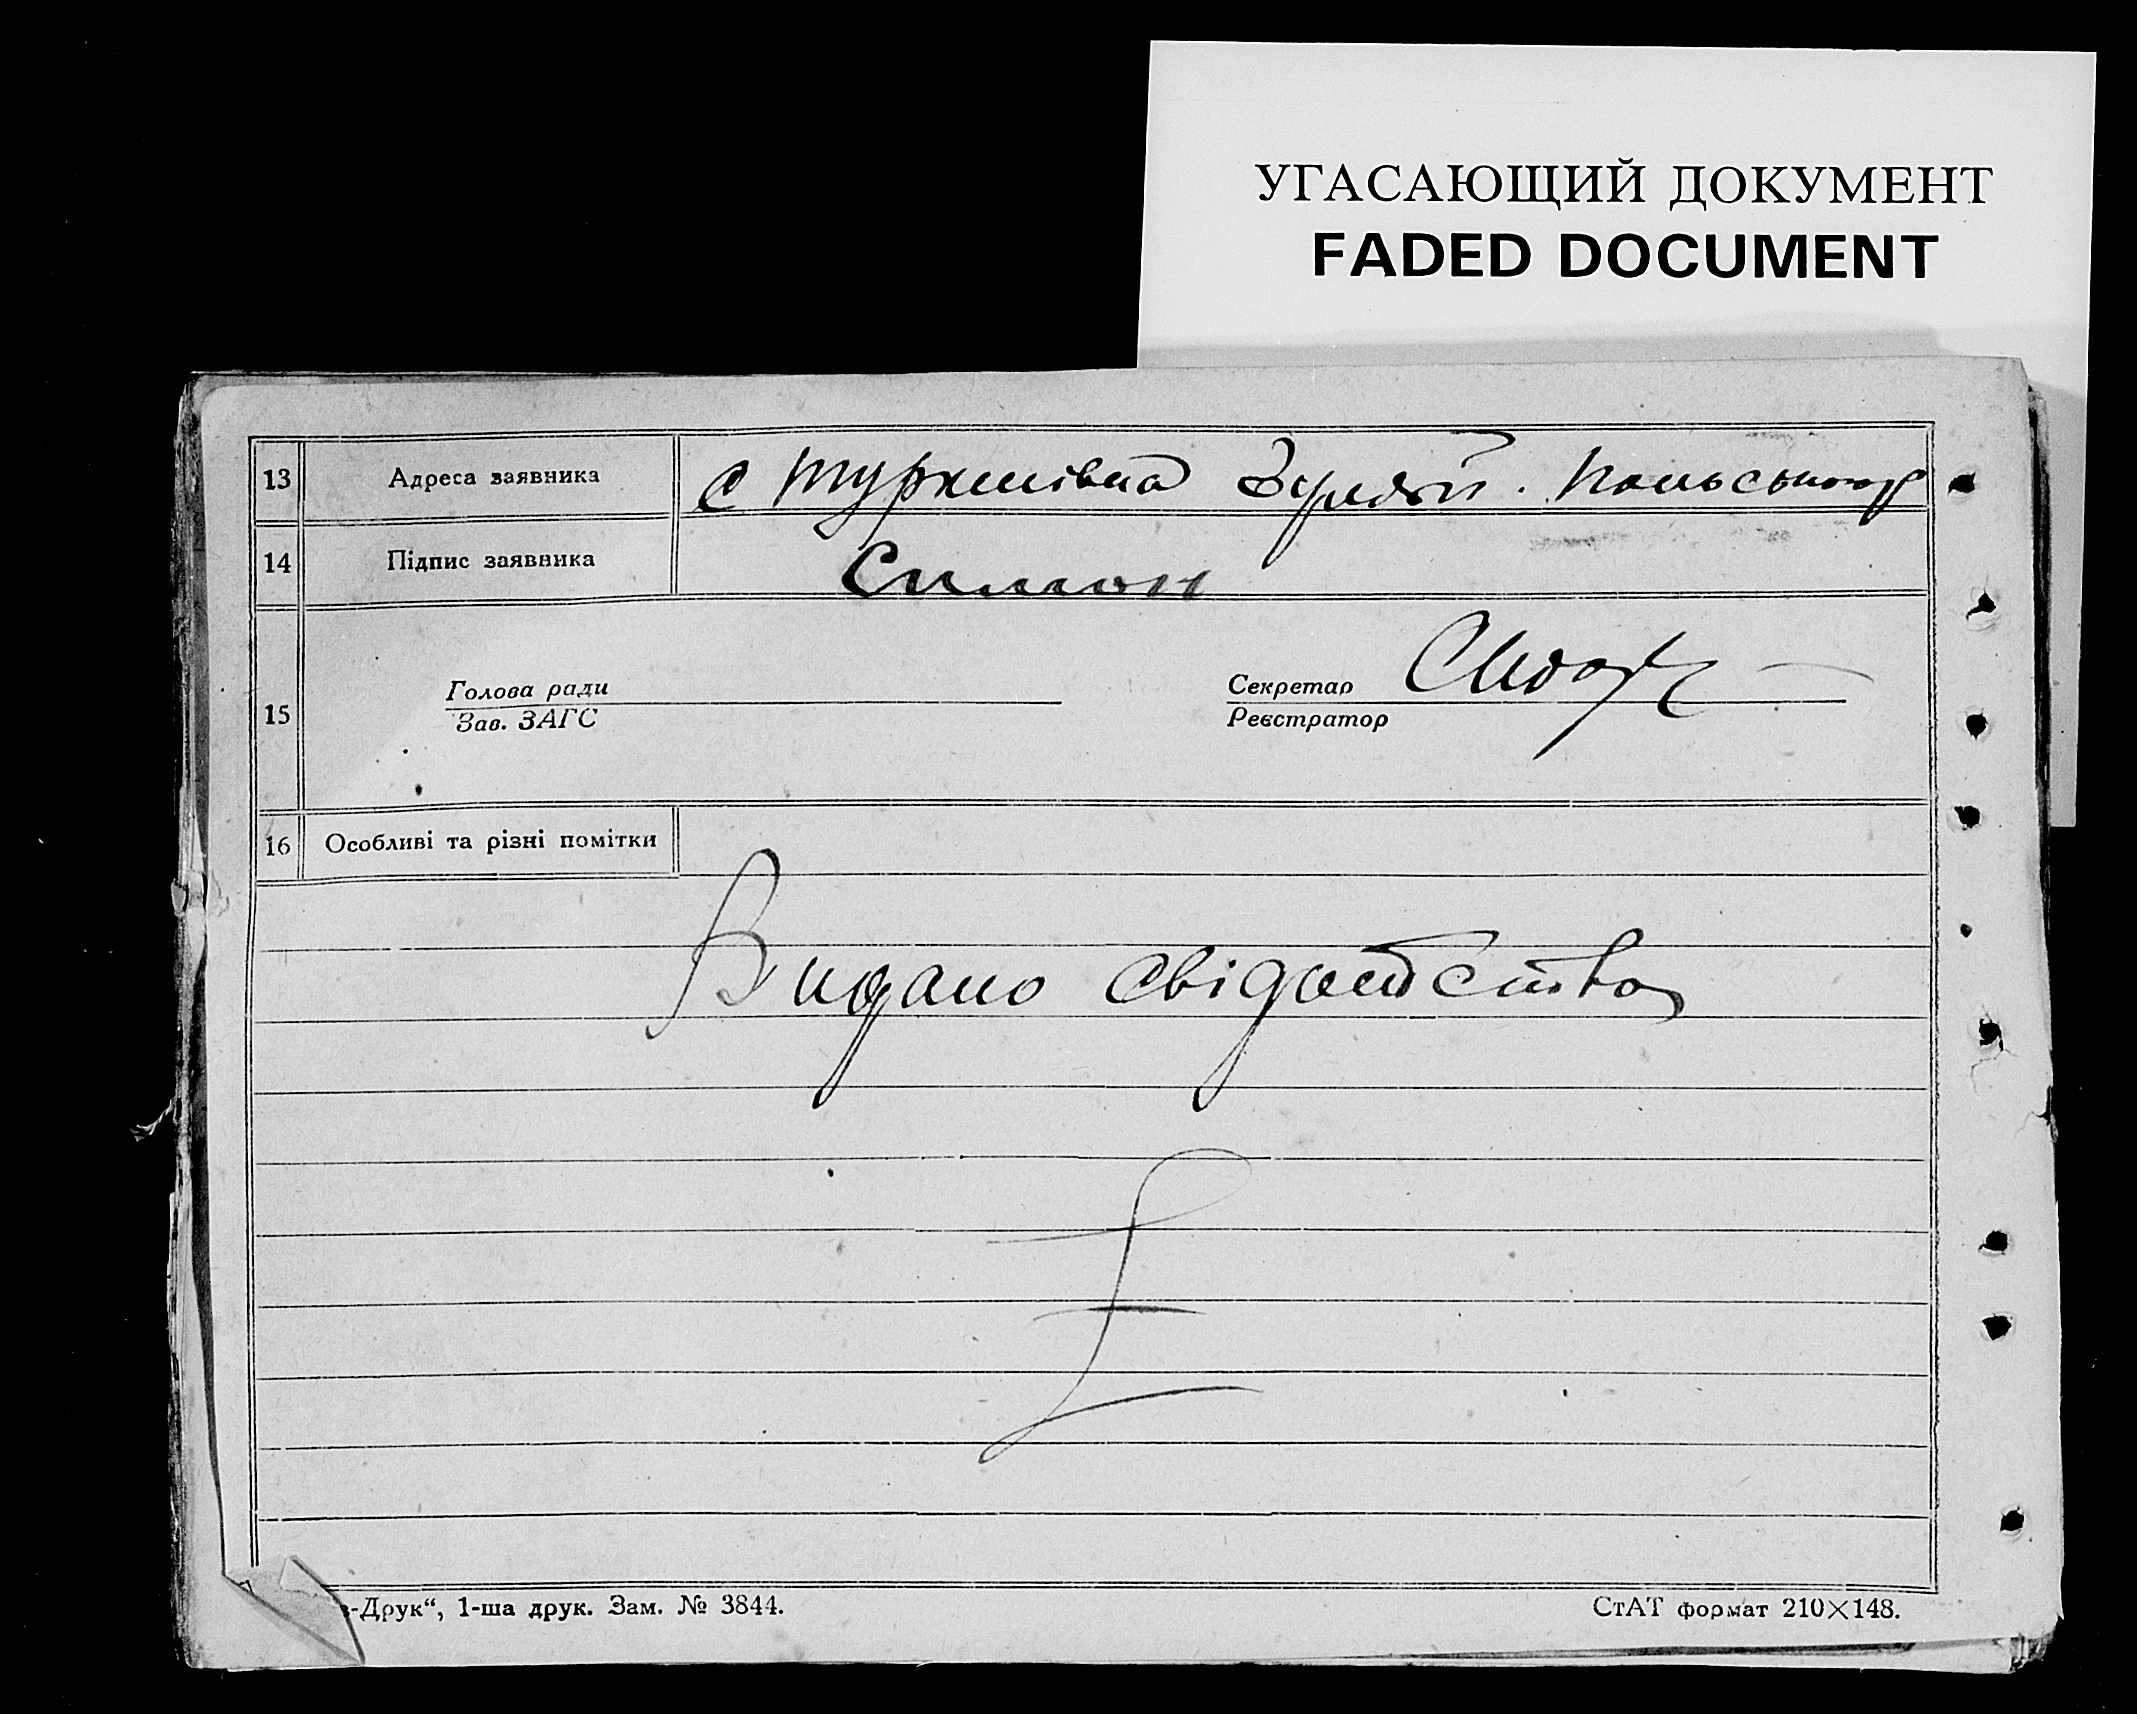 УГАСАЮЩИЙ ДОКУМЕНТ
FADED DOCUMENT
13 Адреса заявника с
14 Підпис заявника Симон
15 Голова ради Секретар
Зав. ЗАГС Реєстратор
16 Особливі та різні помітки
Видано свідоцтво
-Друк“, 1-ша друк. Зам. № 3844. СтАТ формат 210×148.